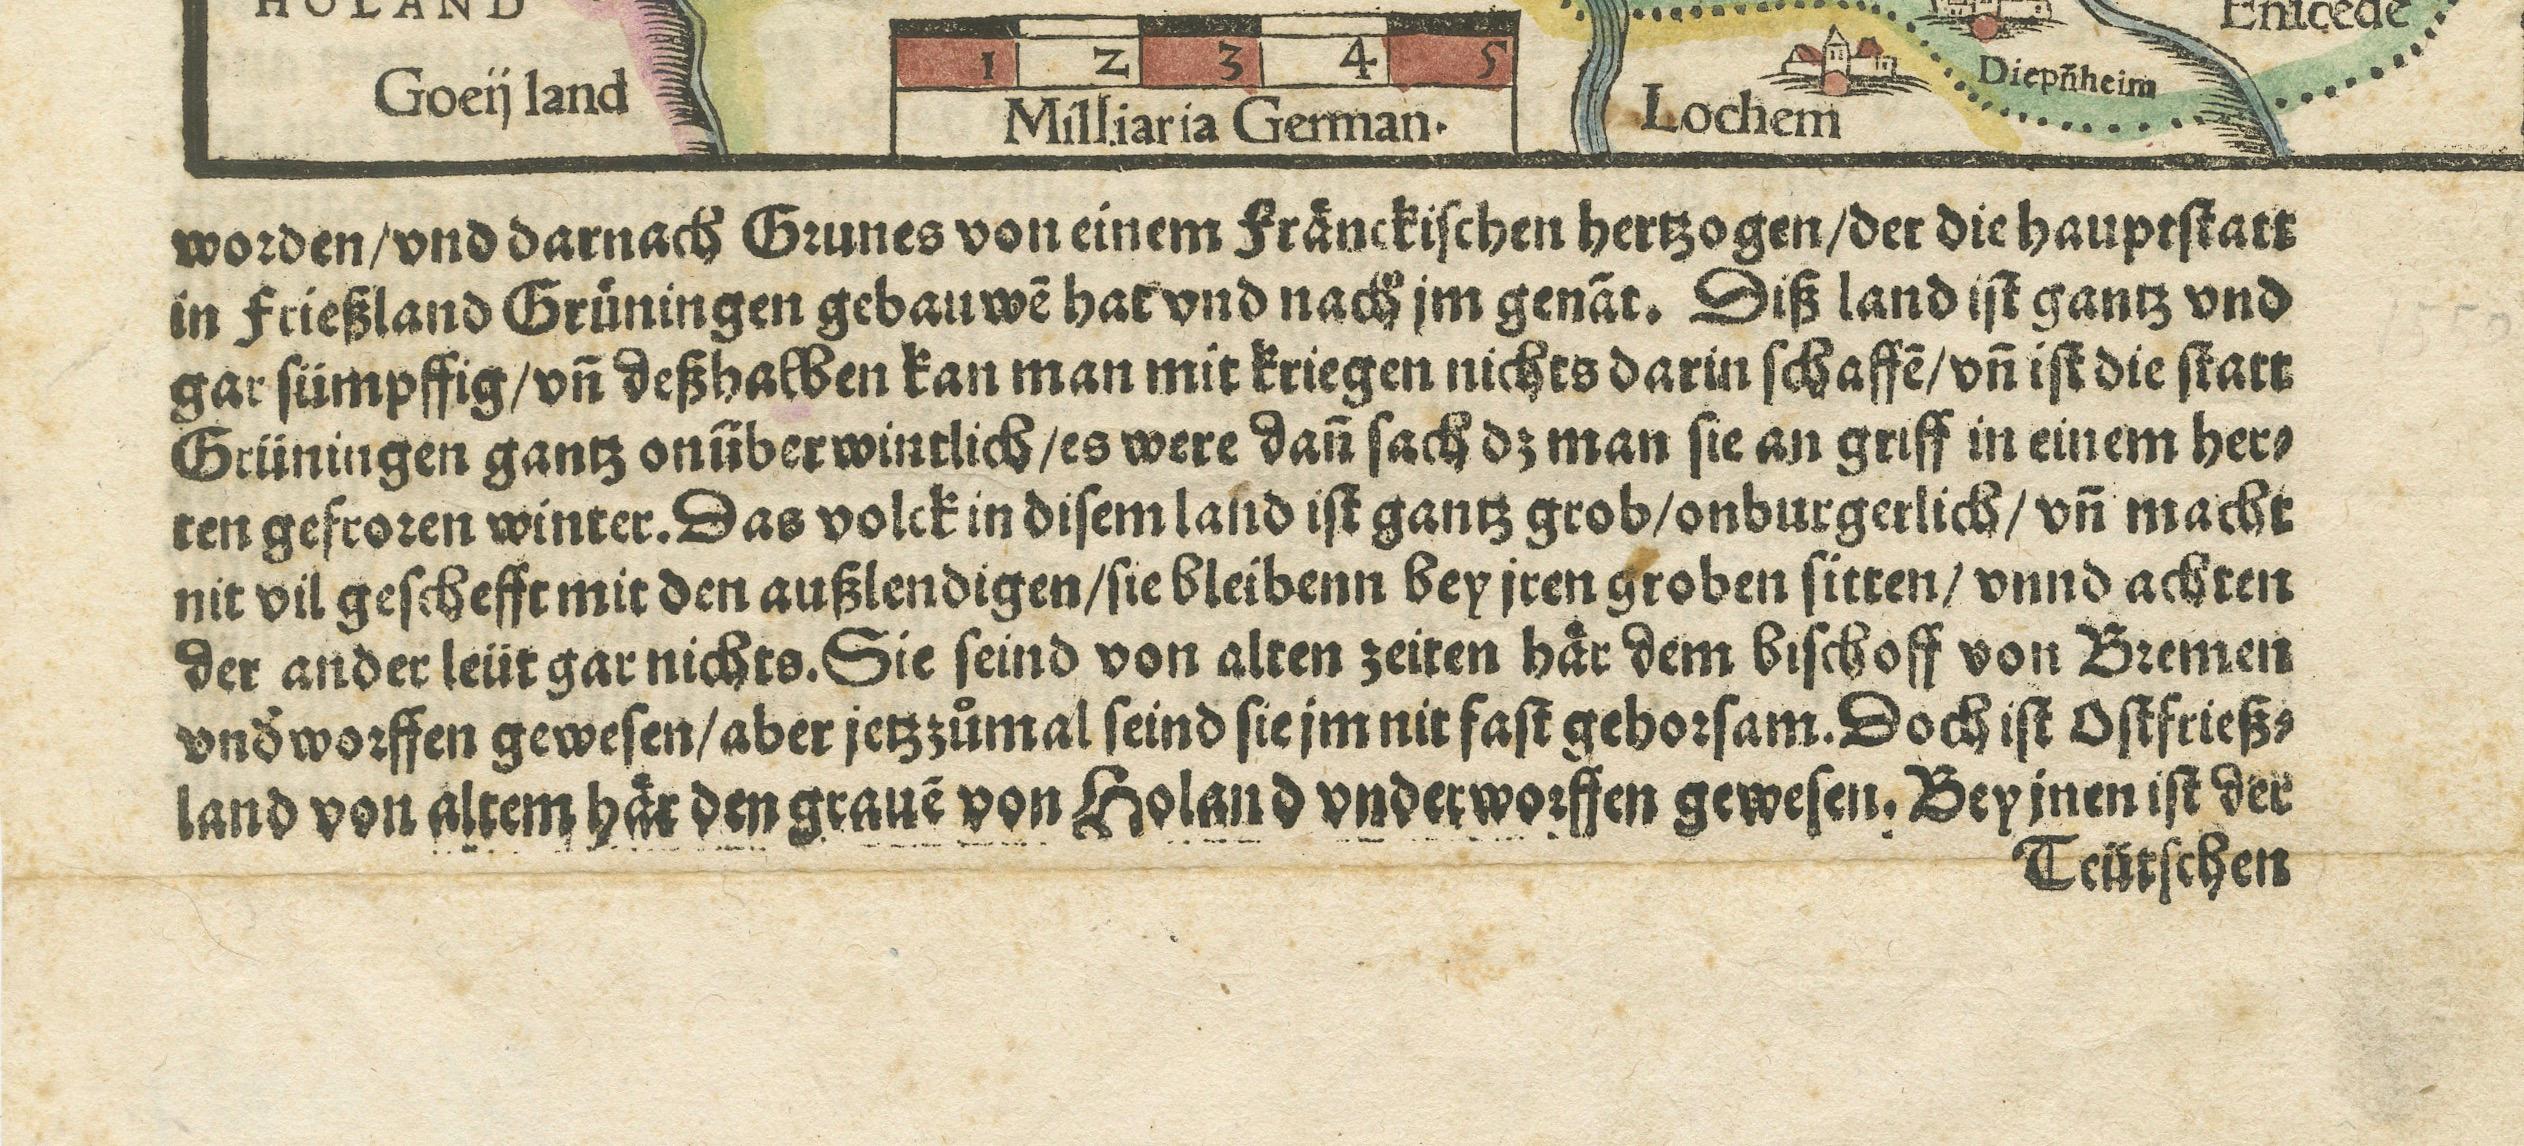 HOLAND
Entcede
1 2 3 4 5
Diepñheim
Goeij land
Milliaria German.
Lochem
worden/vnd darnach Grunes von einem Fränckischen hertzogen/der die hauptstatt
in Frießland Grüningen gebauwẽ hat vnd nach jm genãt. Diß land ist gantz vnd
gar sümpffig/vñ deßhalben kan man mit kriegen nichts darin schaffẽ/vñ ist die statt
Grüningen gantz onüberwintlich/es were dañ sach dz man sie an griff in einem her⸗
ten gefroren winter. Das volck in disem land ist gantz grob/onburgerlich/ vñ macht
nit vil geschefft mit den außlendigen/sie bleibenn bey jren groben sitten/ vnnd achten
der ander leüt gar nichts. Sie seind von alten zeiten hår dem bischoff von Bremen
vnd̛worffen gewesen/aber jetz zůmal seind sie jm nit fast gehorsam. Doch ist Ostfrieß⸗
land von altem hår den grauẽ von Holand vnderworffen gewesen. Bey jnen ist der
Teütschen
1550